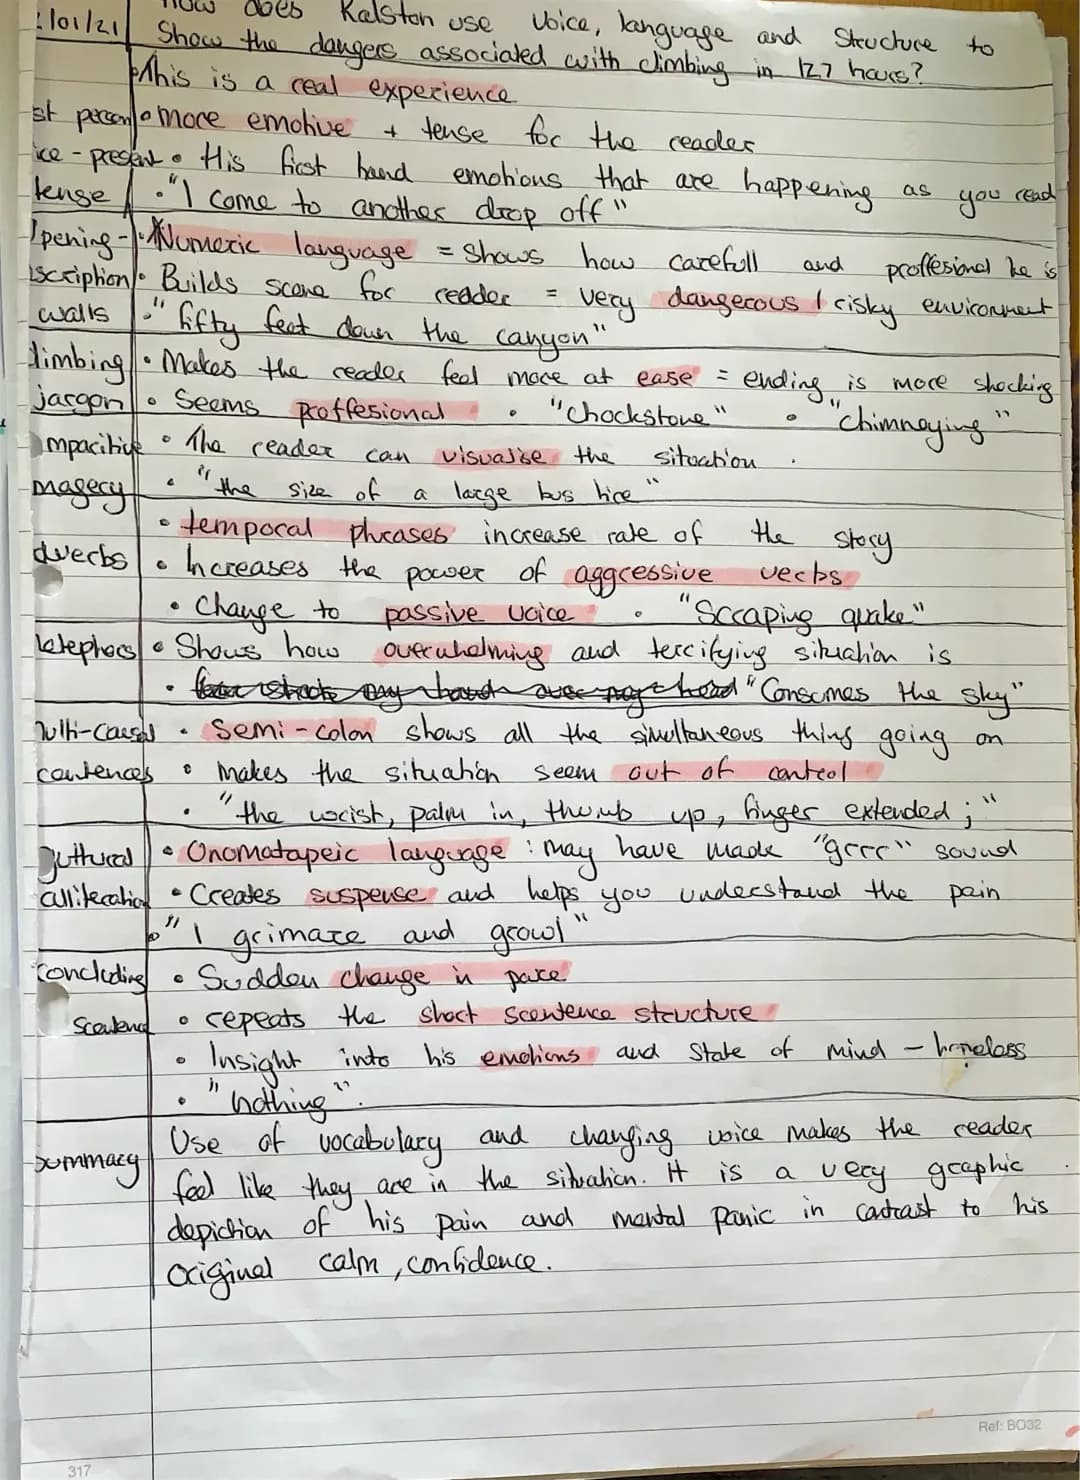 How does Ralston use voice, language and Structure to
:/01/21 Show the dangers associated with climbing in 127 hours?
This is a real experience
st person • more emotive + tense for the reader
ice - present • His first hand emotions that are happening as you read
tense • "I come to another drop off"
pening - • Numeric language = shows how carefull and proffesional he is
scription • Builds scene for reader = very dangerous / risky environment
walls • "fifty feet down the canyon"
limbing • Makes the reader feel more at ease = ending is more shocking
jargon • Seems proffesional • "Chockstone" • "chimneying"
mpacitive • The reader can visualise the situation.
magery • "the size of a large bus tire"
• temporal phrases increase rate of the story
dverbs • Increases the power of aggressive verbs
• Change to passive voice • "Scraping quake"
etephors • Shows how overwhelming and terrifying situation is
• "Consumes the sky"
ulti-causal • Semi-colon shows all the simultaneous thing going on
centences • makes the situation seem out of control
• "the wrist, palm in, thumb up, finger extended;"
guttural • Onomatapeic language : may have made "grrr" sound
alliteration • Creates suspense and helps you understand the pain
• "I grimace and growl"
concluding • Sudden change in pace
Scentence • repeats the short scentence structure
• Insight into his emotions and state of mind - hopeless
• "nothing".
Summary Use of vocabulary and changing voice makes the reader
feel like they are in the situation. It is a very graphic
depiction of his pain and mental panic in contrast to his
original calm, confidence.
Ref: BO32
317